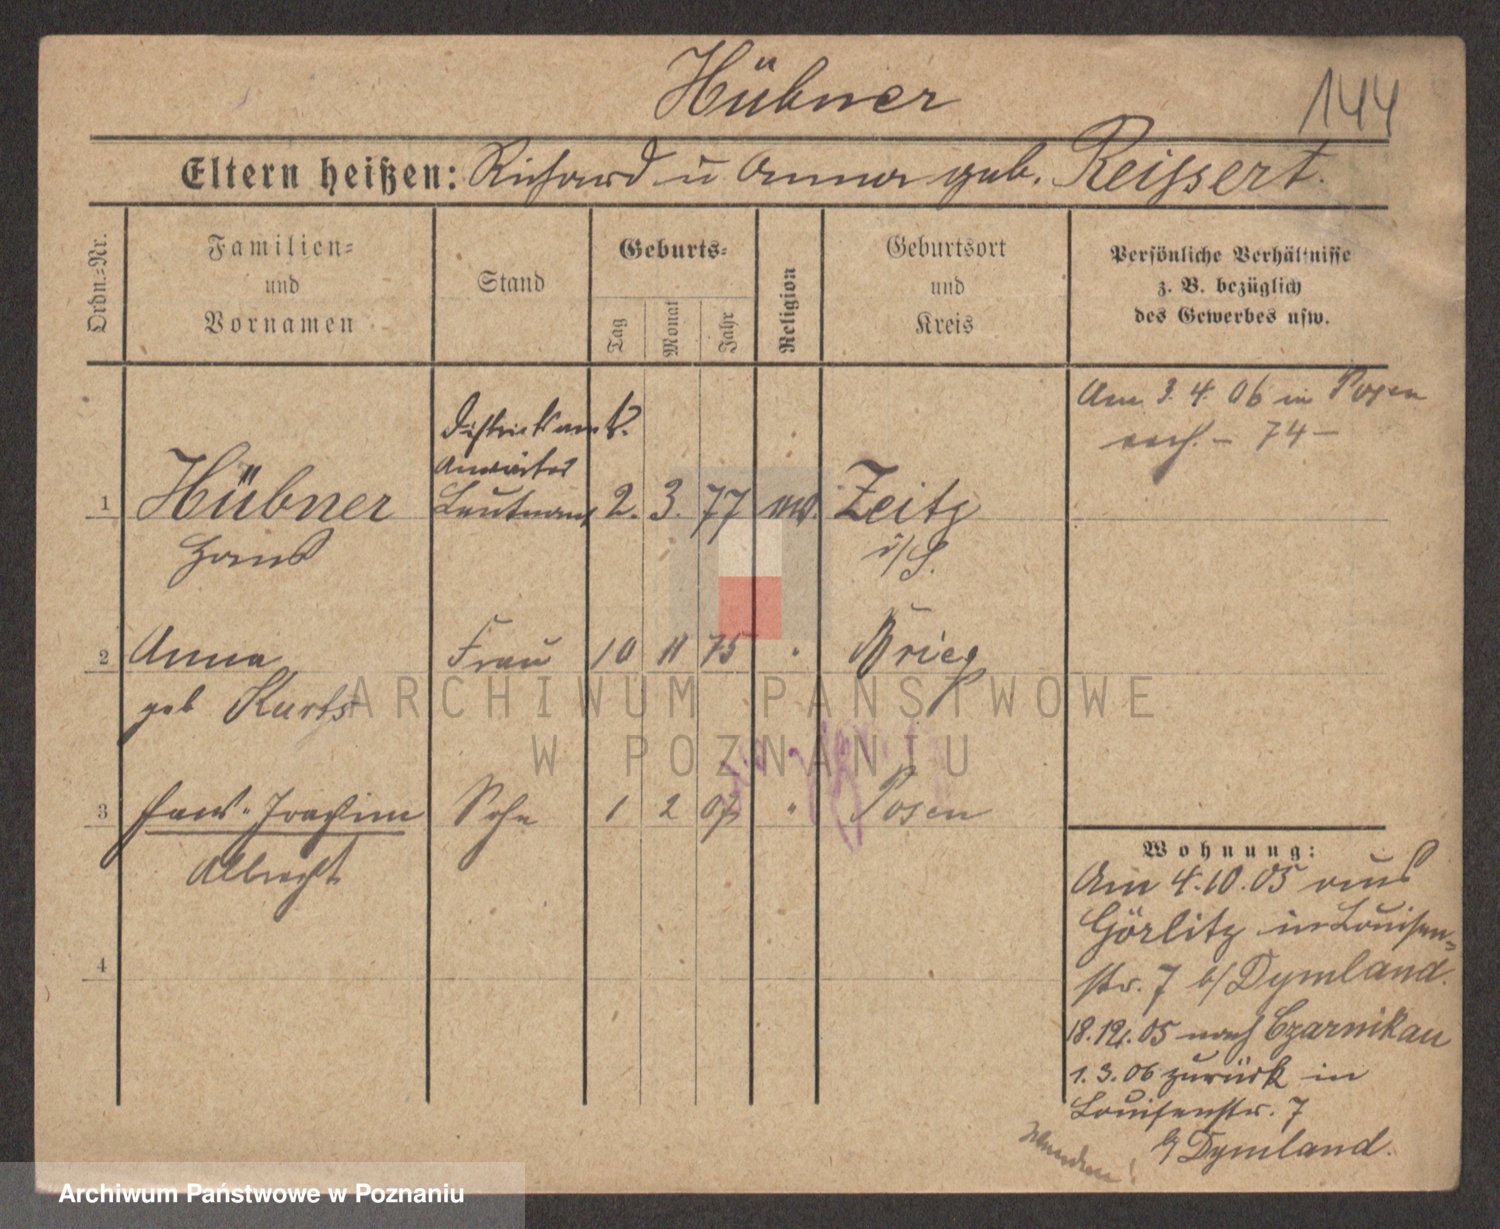 Hübner
144
Eltern heißen: Richard u Anna geb. Reissert.
Ordn.-Nr.
Familien-
und
Vornamen
Stand
Geburts-
Tag
Monat
Jahr
Religion
Geburtsort
und
Kreis
Persönliche Verhältnisse
z. B. bezüglich
des Gewerbes usw.
Am 3. 4. 06 in Posen
74
1
Hübner
Hans
Distriktsamts
Anwärter
Leutnant
2. 3. 77
Zeitz
i/S.
2
Anna
geb Kurts
Frau
10 11 75
Brieg
3
Hans-Joachim
Albrecht
Sohn
1 2 07
Posen
4
Wohnung:
Am 4.10.05 aus
Görlitz in Louisen-
str. 7 b/ Dymland.
18.12.05 nach Czarnikau
1.3.06 zurück in
Louisenstr. 7
b/ Dymland.
Wenden!
ARCHIWUM PAŃSTWOWE
W POZNANIU
Archiwum Państwowe w Poznaniu